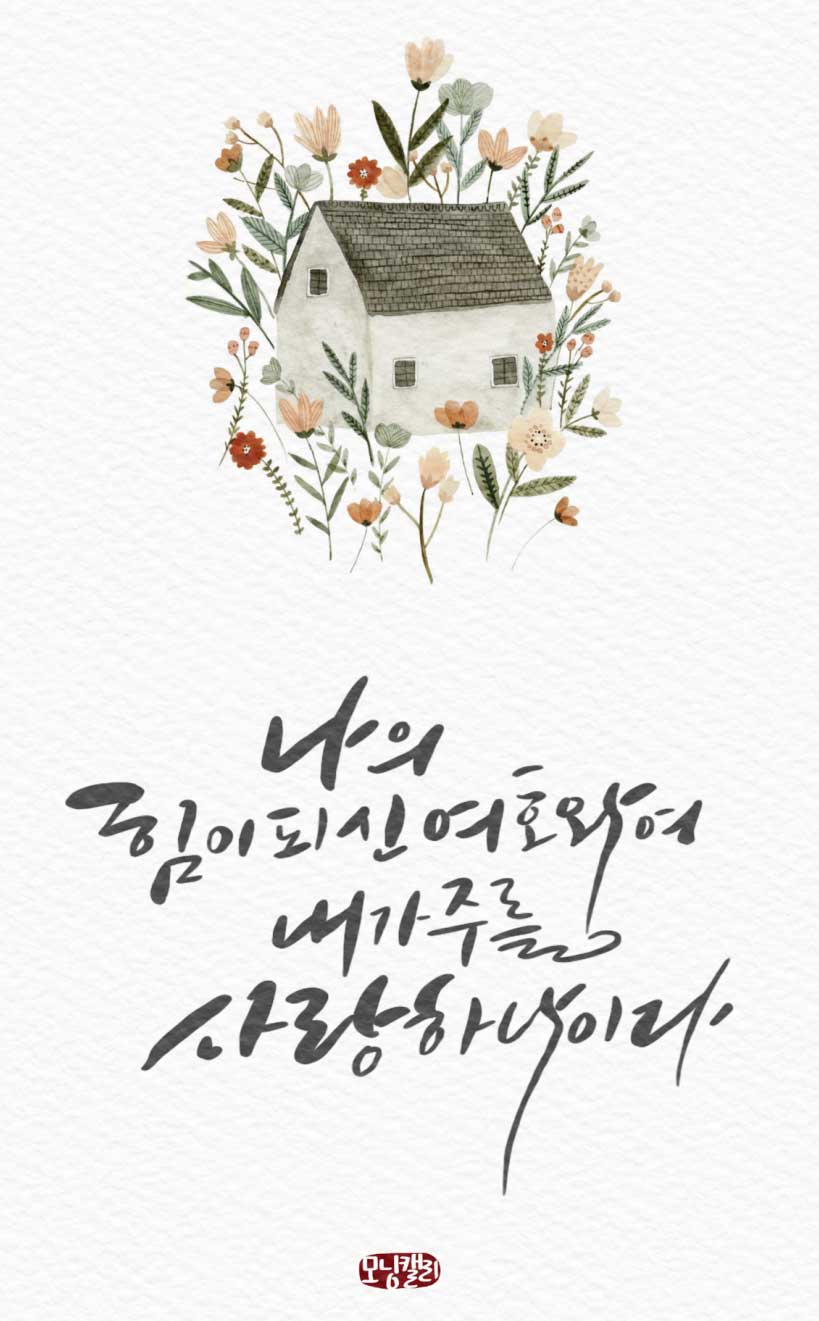 나의
힘이 되신 여호와여
내가 주를
사랑하나이다
모닝캘리